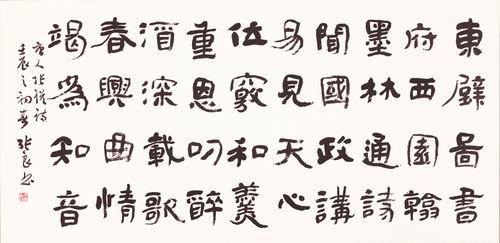 東壁啚書
府西園翰
墨林通詩
聞國政講
易見天心
位竊和羹
重恩叨醉
酒深載歌
春興曲情
竭為知音
唐人張說詩
壬辰之初春 張